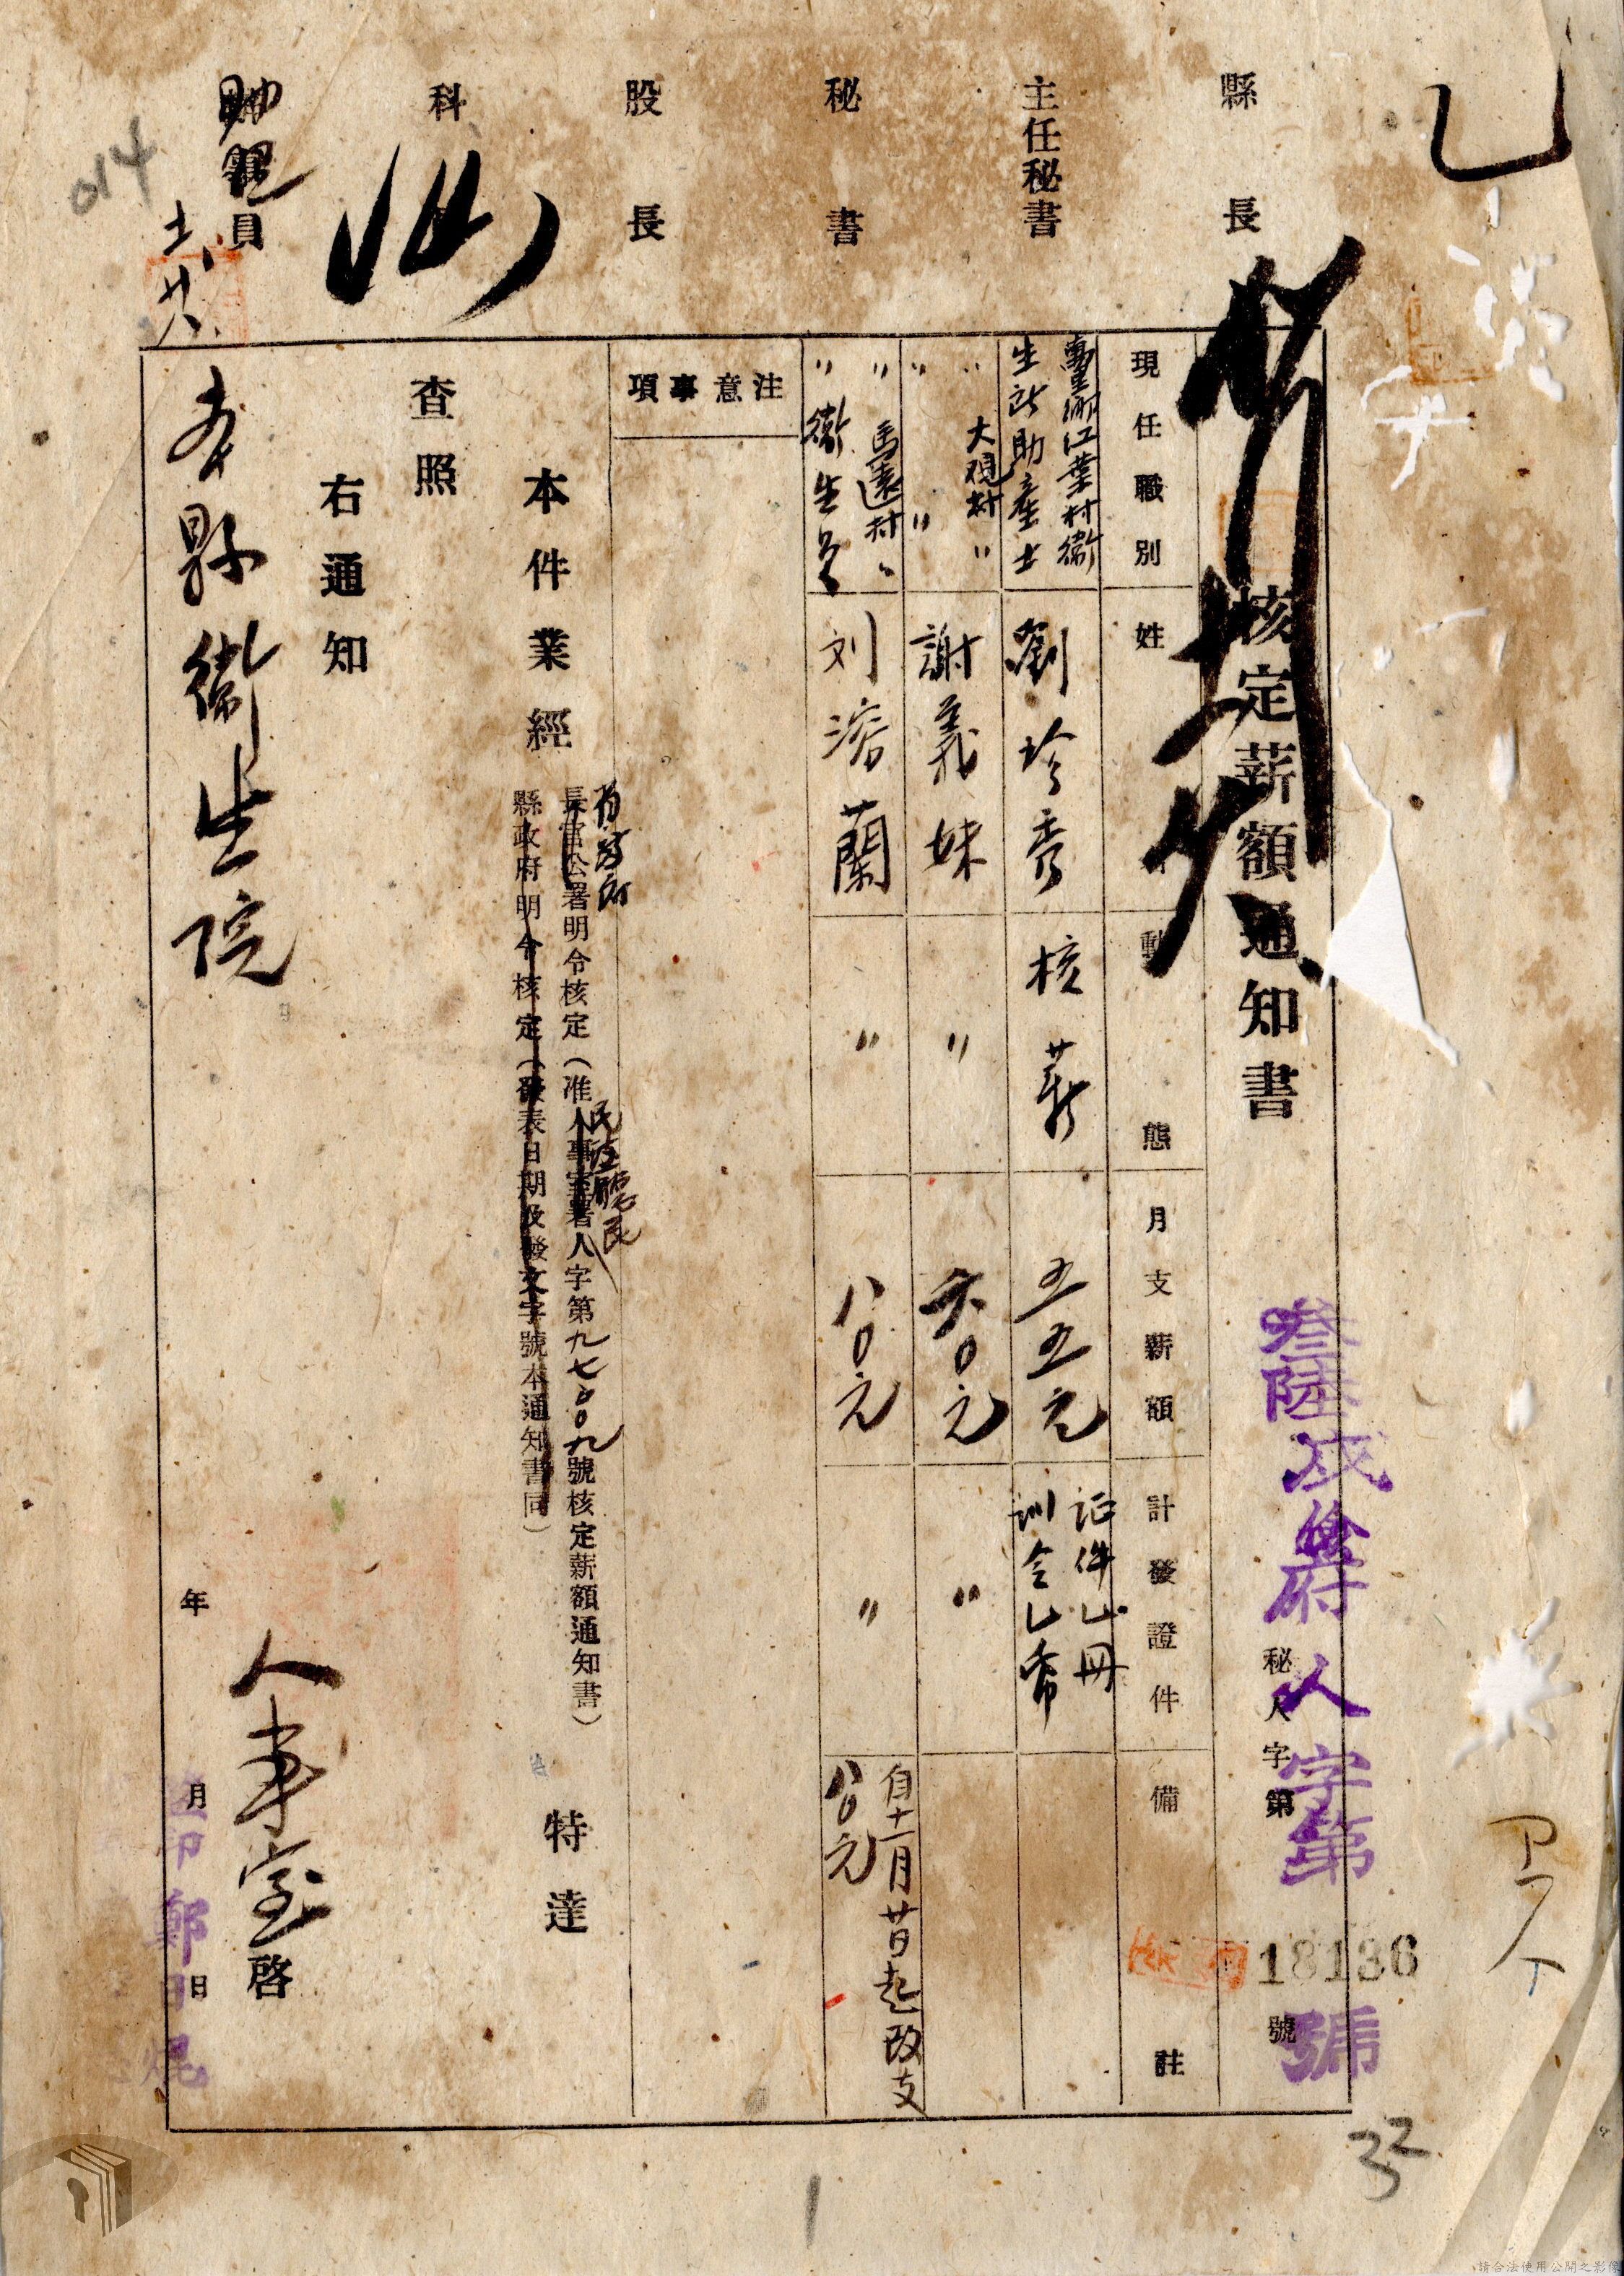 乙
縣長
主任秘書
秘書
股長
科
員
014
核定薪額通知書
叁陸戌 府人字第 號
秘人字第 號
18136
現任職別
姓
動態
月支薪額
計發證件
備註
萬里鄉江葉村衛
生所助產士
劉珍秀
核薪
五五元
証件乙冊
訓令乙帋
〃大觀村〃
〃〃
謝義妹
〃
六〇元
〃
〃馬遠村〃
〃衛生員
刘濬蘭
〃
八〇元
〃
自十一月廿日起改支
八〇元
注意事項
本件業經
省政府
長官公署明令核定(准人事室署人字第九七六〇九號核定薪額通知書)
民政廳民
縣政府明令核定(發表日期及發文字號本通知書同)
特達
查照
右通知
本縣衛生院
人事室啓
年月日
鄭
32
請合法使用公開之影像